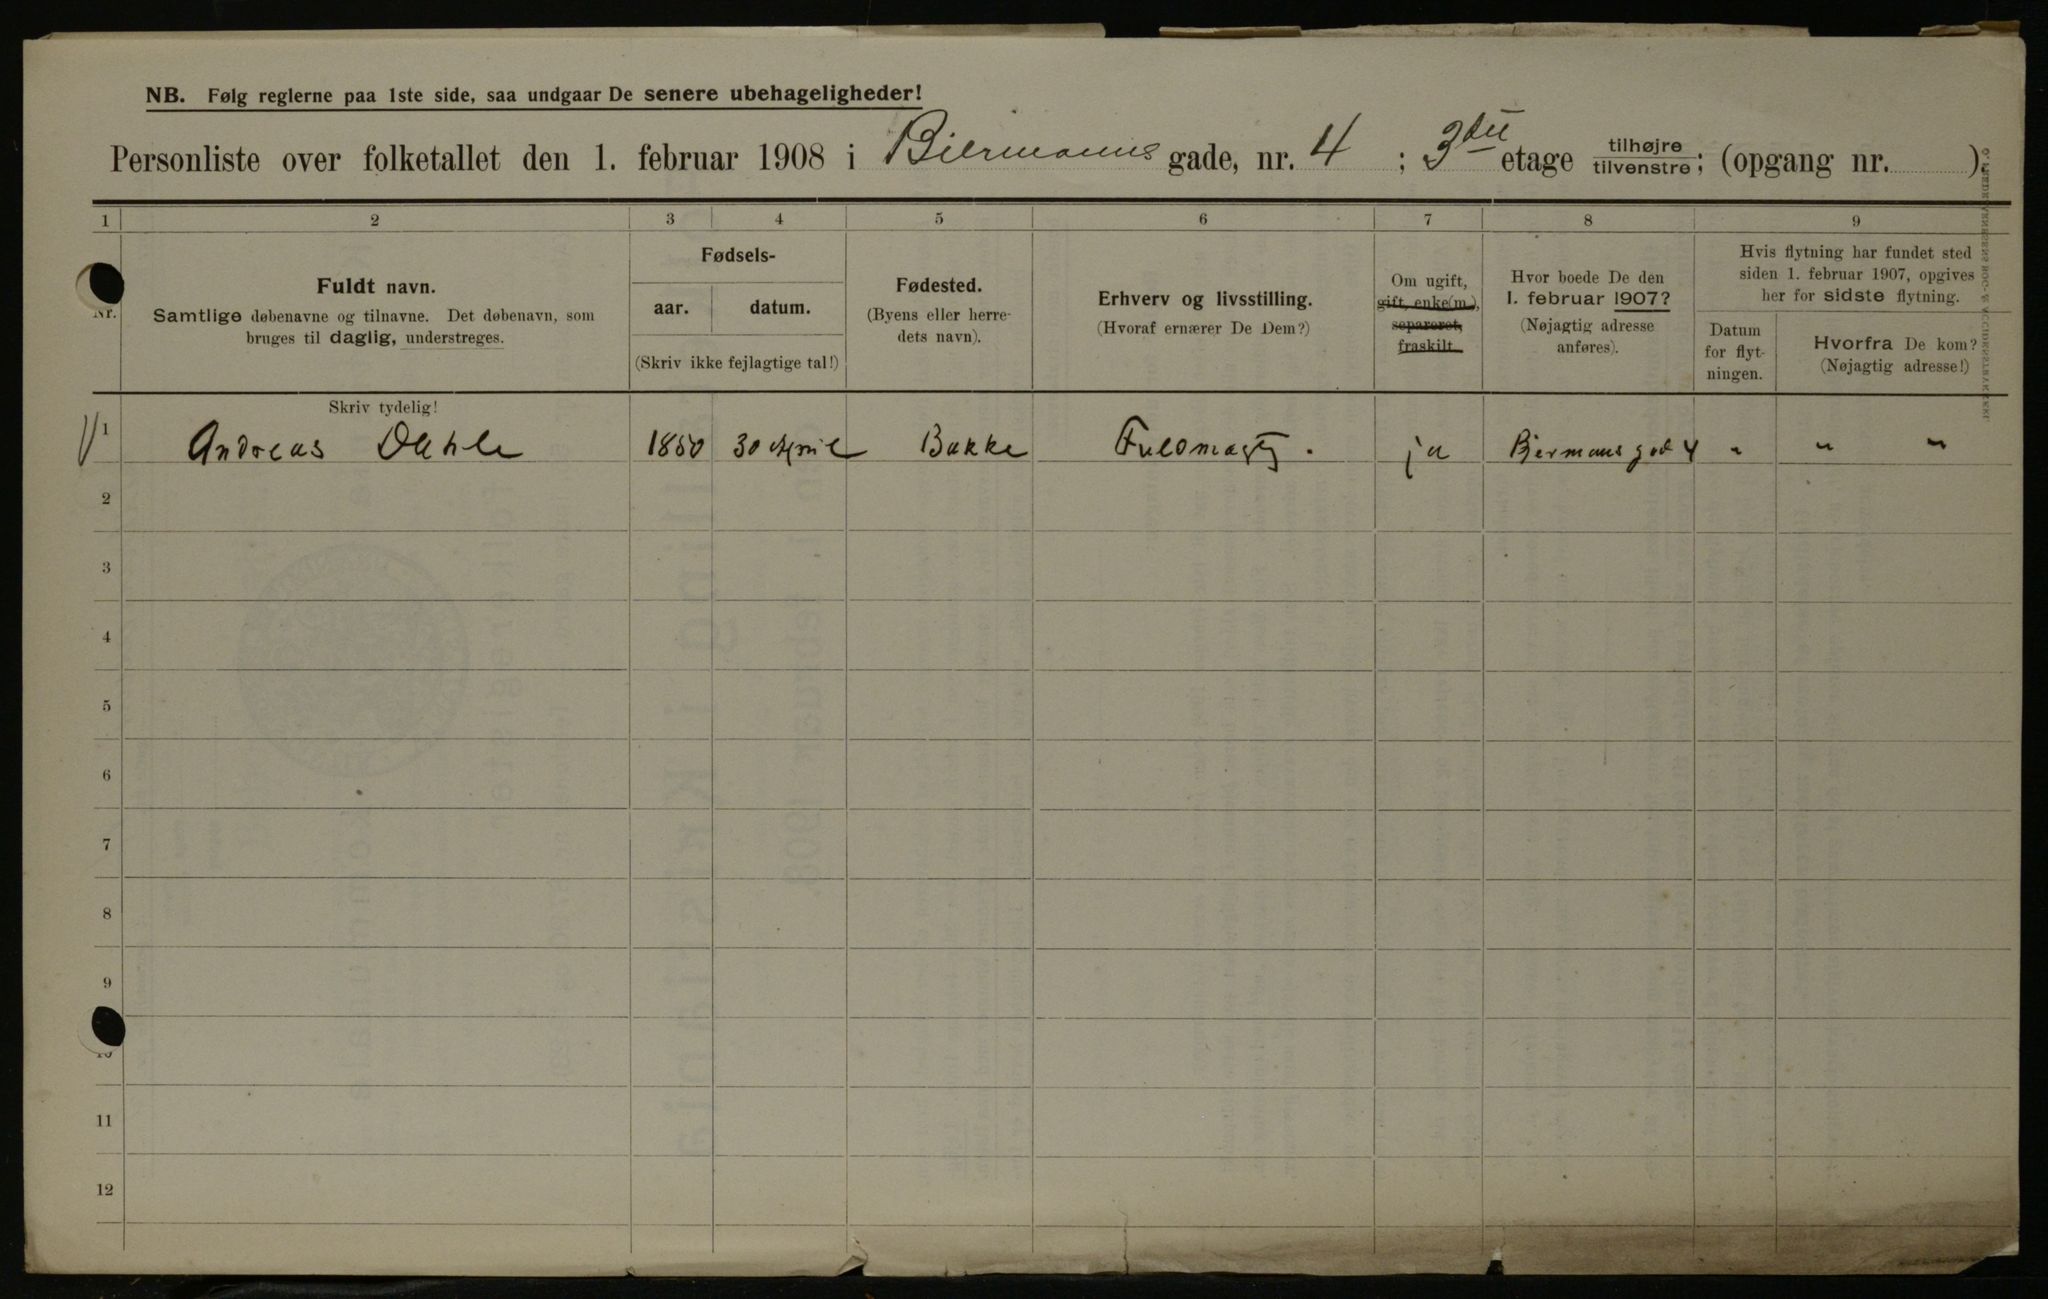 NB. Følg reglerne paa 1ste side, saa undgaar De senere ubehageligheder!
Personliste over folketallet den 1. februar 1908 i Biermanns gade, nr. 4 ; 3die etage tilhøjre tilvenstre; (opgang nr. ).
1 2 3 4 5 6 7 8 9
Nr.
Fuldt navn.
Samtlige døbenavne og tilnavne. Det døbenavn, som
bruges til daglig, understreges.
Fødsels-
aar. datum.
(Skriv ikke fejlagtige tal!)
Fødested.
(Byens eller herre-
dets navn).
Erhverv og livsstilling.
(Hvoraf ernærer De Dem?)
Om ugift,
gift, enke(m.),
separeret,
fraskilt.
Hvor boede De den
1. februar 1907?
(Nøjagtig adresse
anføres).
Hvis flytning har fundet sted
siden 1. februar 1907, opgives
her for sidste flytning.
Datum
for flyt-
ningen.
Hvorfra De kom?
(Nøjagtig adresse!)
Skriv tydelig!
1 Andreas Dahle 1850 30 April Bakke Fuldmægtig. ja Biermansgad 4 " " "
2
3
4
5
6
7
8
9
10
11
12